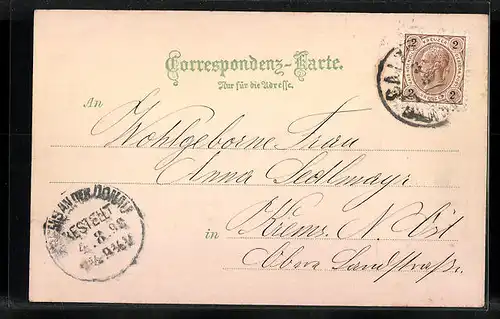 Correspondenz-Karte.
Nur für die Adresse.
2 KREUZER 2
2 2
An
Wohlgeborne Frau
Anna Sedlmayr
in Krems N. Öst
Obere Landstraße
AN DER DONAU
BESTELLT